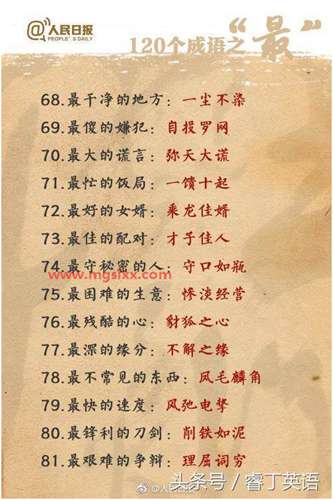 @人民日报
PEOPLE'S DAILY
120个成语之“最”
68.最干净的地方：一尘不染
69.最傻的嫌犯：自投罗网
70.最大的谎言：弥天大谎
71.最忙的饭局：一馈十起
72.最好的女婿：乘龙佳婿
73.最佳的配对：才子佳人
74.最守秘密的人：守口如瓶
www.mgslxx.com
75.最困难的生意：惨淡经营
76.最残酷的心：豺狐之心
77.最深的缘分：不解之缘
78.最不常见的东西：凤毛麟角
79.最快的速度：风弛电掣
80.最锋利的刀剑：削铁如泥
81.最艰难的争辩：理屈词穷
@人民日报
头条号 / 睿丁英语